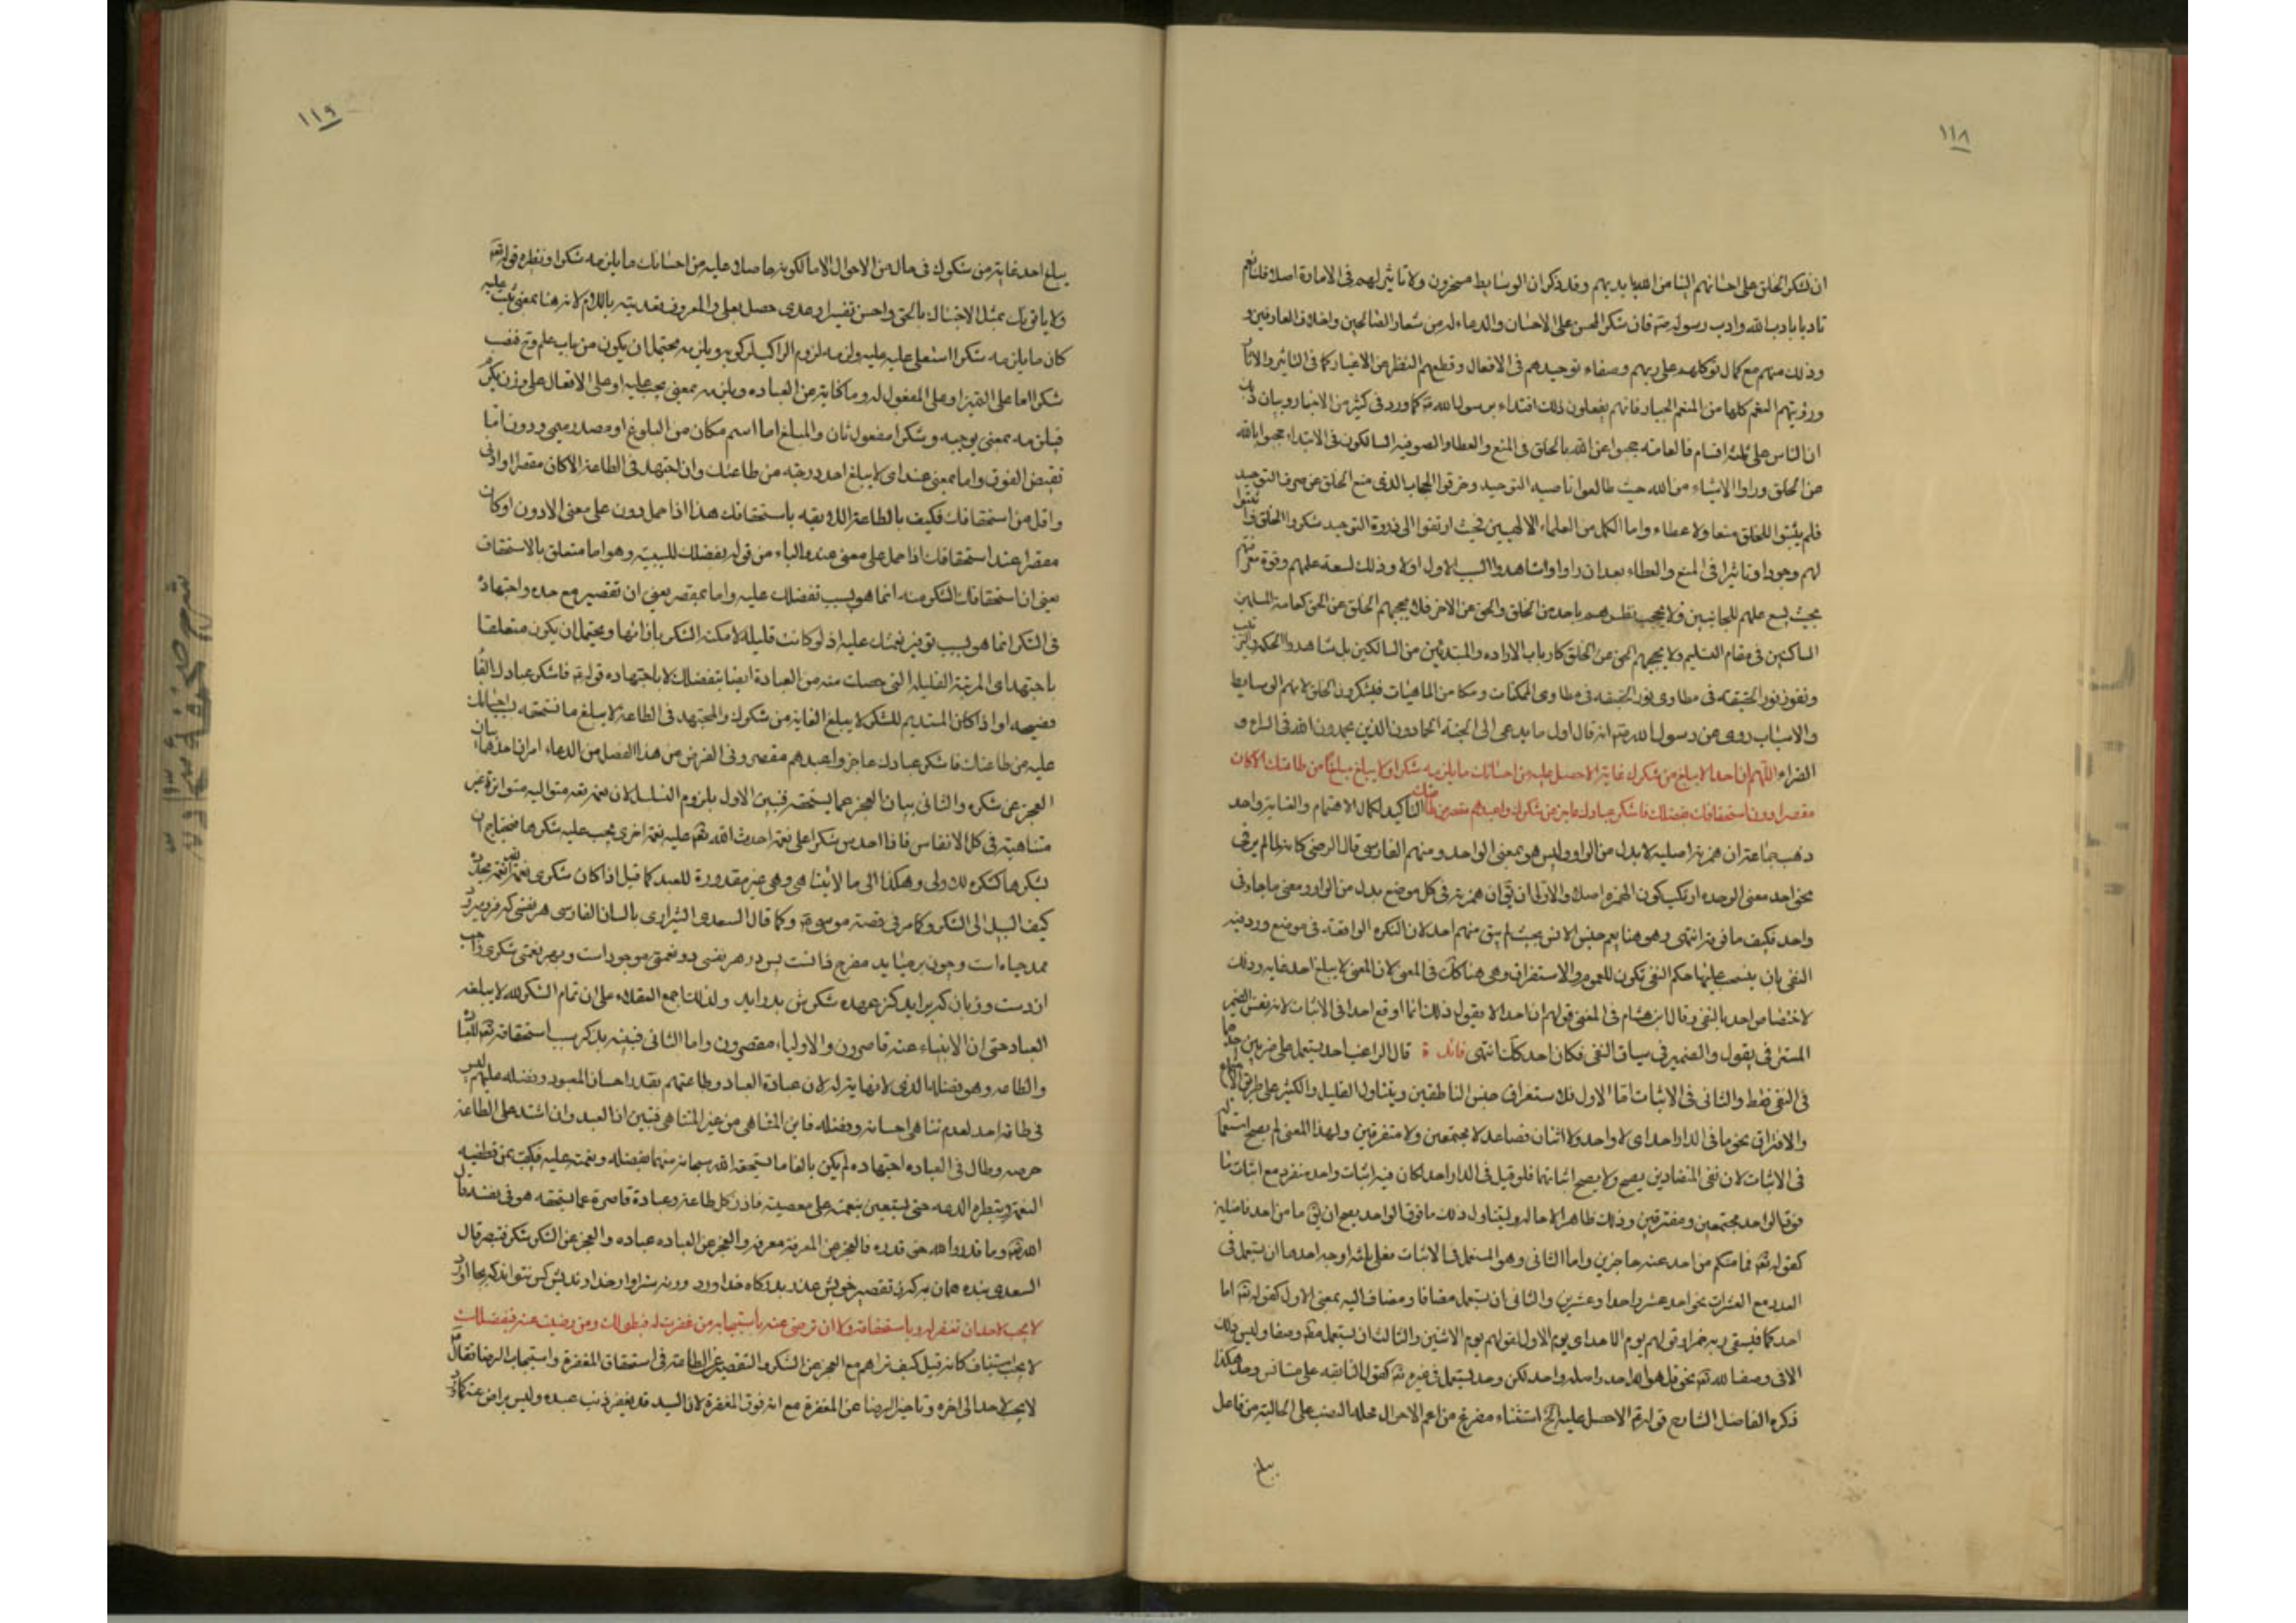 ١١٨
ان نشكر الخلق على احسانهم الينا من الله بايديهم وقد ذكر ان الوسايط مسخرون ولا تاثير لهم في الامادة اصلا قلنا نعم
تاديبا باداب الله وادب رسوله صم فان شكر المحسن على الاحسان والدعاء له من شعار الصالحين واخلاق العارفين و
وذلك منهم مع كمال توكلهم على ربهم وصفاء توحيدهم في الافعال وقطعهم النظر عن الاغيار كما في التاثير والاثار
ورؤيتهم النعم كلها من المنعم الجبار فانهم يفعلون ذلك اقتداء برسول الله صم كما ورد في كثير من الاخبار وبيان ذلك
ان الناس على ثلثة اقسام فالعامة حجبوا عن الله بالخلق في المنع والعطا والصوفيه السالكون في الابتداء حجبوا بالله
عن الخلق وراوا الاشياء من الله حيث طالعوا ناصيه التوحيد وخرقوا الحجاب الذي منع الخلق عن صرف التوحيد
فلم يثبتوا للخلق منعا ولا عطاء واما الكمل من العلماء الالهيين فحيث ارتقوا الى ذروة التوحيد شكروا الخلق واثبتوا
لهم وجودا وتاثيرا في المنع والعطاء بعد ان راوا وشاهدوا السبب الاول اولا وذلك لسعة علمهم وقوة معرفتهم
بحيث يسع علمهم للجانبين ولا يحجب نظرهم باحد من الخلق والحق عن الاخر فلا يحجبهم الخلق عن الحق كعامة المسلمين
الساكنين في مقام التسليم ولا يحجبهم الحق عن الخلق كارباب الارادة والمبتدئين من السالكين بل شاهدوا الحكمه والترتيب
ونفوذ نور الحقيقه في مطاوى الممكنات ومكامن الماهيات فيشكرون الخلق لانهم الوسايط
والاسباب روى عن رسول الله صم انه قال اول ما يدعى الى الجنة الحمادون الذين يحمدون الله في السراء و
الضراء اللهم ان احدا لا يبلغ من شكرك غاية الا حصل عليه من احسانك ما يلزمه شكرا ولا يبلغ مبلغا من طاعتك الا كان
مقصرا دون استحقاقك بفضلك فاشكر عبادك عاجز عن شكرك واعبدهم مقصر عن طاعتك التاكيد لكمال الاهتمام والغاية واحد
ذهب جماعة ان همزته اصلية لا بدل من الواو وليس هو بمعنى الواحد ومنهم الفارسي قال الرضي كانه لما لم ير في
نحو احد معنى الوحدة ارتكب كون الهمزه اصلا والاولى ان يق ان همزته في كل موضع بدل من الواو ومعنى ما جاءني
واحد فكيف ما فوقه انتهى وهو هنا يعم جنس الانس بحيث لم يبق منهم احد لان النكره الواقعة في موضع ورد فيه
النفي بان ينسحب عليها حكم النفي تكون للعموم والاستغراق وهي هنا كك في المعنى لان المعنى لا يبلغ احد غايه وذلك
لاختصاص احد بالنفي وقال ابن هشام في المغنى قولهم ان احدا لا يقول ذلك انما اوقع احدا في الاثبات لانه نفس الضمير
المستتر في يقول والضمير في سياق النفي فكان احد كك انتهى فائدة قال الراغب احد يستعمل على ضربين احدهما
في النفي فقط والثاني في الاثبات اما الاول فلاستغراق جنس الناطقين ويتناول القليل والكثير على طريق الاجتماع
والافتراق نحو ما في الدار احد اي لا واحد ولا اثنان فصاعدا لا مجتمعين ولا متفرقين ولهذا المعنى لم يصح استعماله
في الاثبات لان نفي المتضادين يصح ولا يصح اثباتهما فلو قيل في الدار احد لكان فيه اثبات واحد منفرد مع اثبات ما
فوق الواحد مجتمعين ومفترقين وذلك ظاهر الاحاله وليتناول ذلك ما فوق الواحد يصح ان يق ما من احد فاضلين
كقوله تعه فما منكم من احد عنه حاجزين واما الثاني وهو المستعمل في الاثبات فعلى ثلثه اوجه احدها ان يستعمل في
العدد مع العشرات نحو احد عشر واحدا وعشرين والثاني ان يستعمل مضافا ومضاف اليه بمعنى الاول كقوله تعه اما
احدكما فيسقى ربه خمرا وقولهم يوم الاحد اي يوم الاول لقولهم يوم الاثنين والثالث ان يستعمل مطه وصفا وليس ذلك
الا في وصف الله تعه نحو قل هو الله احد واصله واحد لكن وحد يستعمل في غيره تعه كقول النابغه على مستانس وحد هكذا
ذكره الفاضل الشارح قوله عم الا حصل عليه الخ استثناء مفرغ من اعم الاحوال محله النصب على الحالية من فاعل
يبلغ
١١٩
يبلغ احد غاية من شكرك في حال من الاحوال الا حال كونه حاصلا عليه من احسانك ما يلزمه شكرا ونظيره قوله تعه
ولا ياتونك بمثل الا جئناك بالحق واحسن تفسيرا وعدى حصل بعلى والمعروف تعديته باللام لانه هنا بمعنى ثبت عليه
كان ما يلزمه شكرا استعلى عليه ولزمه لزوم الراكب لمركوبه ويلزمه يحتمل ان يكون من باب علم وح فنصب
شكرا اما على التميز او على المفعول له وما كناية عن العباده ويلزمه بمعنى يجب عليه او على الافعال على وزن يكرم
فيلزمه بمعنى يوجبه وشكرا مفعول ثان والمبلغ اما اسم مكان من البلوغ او مصدر ميمي ودون اما
نقيض الفوق واما بمعنى عند اي لا يبلغ احد درجة من طاعتك وان اجتهد في الطاعة الا كان مقصرا وادنى
واقل من استحقاقك فكيف بالطاعة اللايقه باستحقاقك هذا اذا حمل دون على معنى الادون او كان
مقصرا عند استحقاقك اذا حمل على معنى عند والباء من قوله بفضلك للسببيه وهو اما متعلق بالاستحقاق
يعني ان استحقاقك الشكر منه انما هو بسبب تفضلك عليه واما بمقصر يعني ان تقصيره مع جده واجتهاده
في الشكر انما هو بسبب توفير نعمتك عليه اذ لو كانت قليله لامكنه الشكر بازائها ويحتمل ان يكون متعلقا
باجتهد اي المرتبة القليله التي حصلت منه من العبادة ايضا بتفضلك لا باجتهاده قوله عم فاشكر عبادك الفاء
فصيحه او اذا كان المستديم للشكر لا يبلغ الغاية من شكرك والمجتهد في الطاعة لا يبلغ ما تستحقه باحسانك
عليه من طاعتك فاشكر عبادك عاجز واعبدهم مقصر وفي الغرض من هذا الفصل من الدعاء امران احدهما بيان
العجز عن شكره والثاني بيان العجز عما يستحقه فبين الاول بلزوم التسلسل لان نعمه تعه متواليه متواترة غير
متناهية في كل الانفاس فاذا احدث شكرا على نعمة احدث الله تعه عليه نعمة اخرى يجب عليه شكرها فيحتاج ان
يشكرها كشكره للاولى وهكذا الى ما لا يتناهى وهي غير مقدورة للعبد كما قيل اذا كان شكري نعمة الله نعمة مجدده
كيف السبيل الى الشكر وكما مر في قصة موسى ع وكما قال السعدي الشيرازي بالسان الفارسي هر نفسي كه فرو ميرود
ممد حياه است وچون بر ميايد مفرح ذاتست پس در هر نفسي دو نعمت موجود است و بر هر نعمتي شكري واجب
از دست و زبان كه برايد كز عهده شكرش بدر ايد ولذلك اجمع العقلاء على ان تمام الشكر لله لا يبلغه
العباد حتى ان الانبياء عنه قاصرون والاولياء مقصرون واما الثاني فبينه بذكر سبب استحقاقه تعه للعباده
والطاعه وهو بفضله الذي لا نهاية له لان عبادة العباد وطاعتهم بقدر احسان المعبود وفضله عليهم وليس
في طاقة احد لعدم تناهي احسانه وفضله فاين المتناهي من غير المتناهي فتبين ان العبد وان اشتد على الطاعة
حرصه وطال في العباده اجتهاده لم يكن بالغا ما يستحقه الله سبحانه منهما بفضله ونعمته عليه فكيف بمن قطفيه
النعمة ويبطره الدعه حتى يستعين بنعمته على معصيته فاذن كل طاعة وعبادة قاصرة عما يستحقه هو في نفسه قال
الله تعه وما قدروا الله حق قدره فالعجز عن المعرفة معرفة والعجز عن العباده عباده والعجز عن الشكر شكر فتبصر قال
السعدي بنده همان به كه ز تقصير خويش عذر بدرگاه خدا اورد ورنه سزاوار خداونديش كس نتواند كه بجا اورد
لا يجب لاحد ان تغفر له باستحقاقه ولا ان ترضى عنه باستيجابه فمن غفرت له فبطولك ومن رضيت عنه فبفضلك
لا يجب استيناف كانه قيل كيف تراهم مع العجز عن الشكر والتقصير عن الطاعة في استحقاق المغفرة واستيجاب الرضا فقال عم
لا يجب لاحد الى اخره وتاخير الرضا عن المغفرة مع انه فوق المغفرة لان السيد قد يغفر ذنب عبده وليس براض عنه